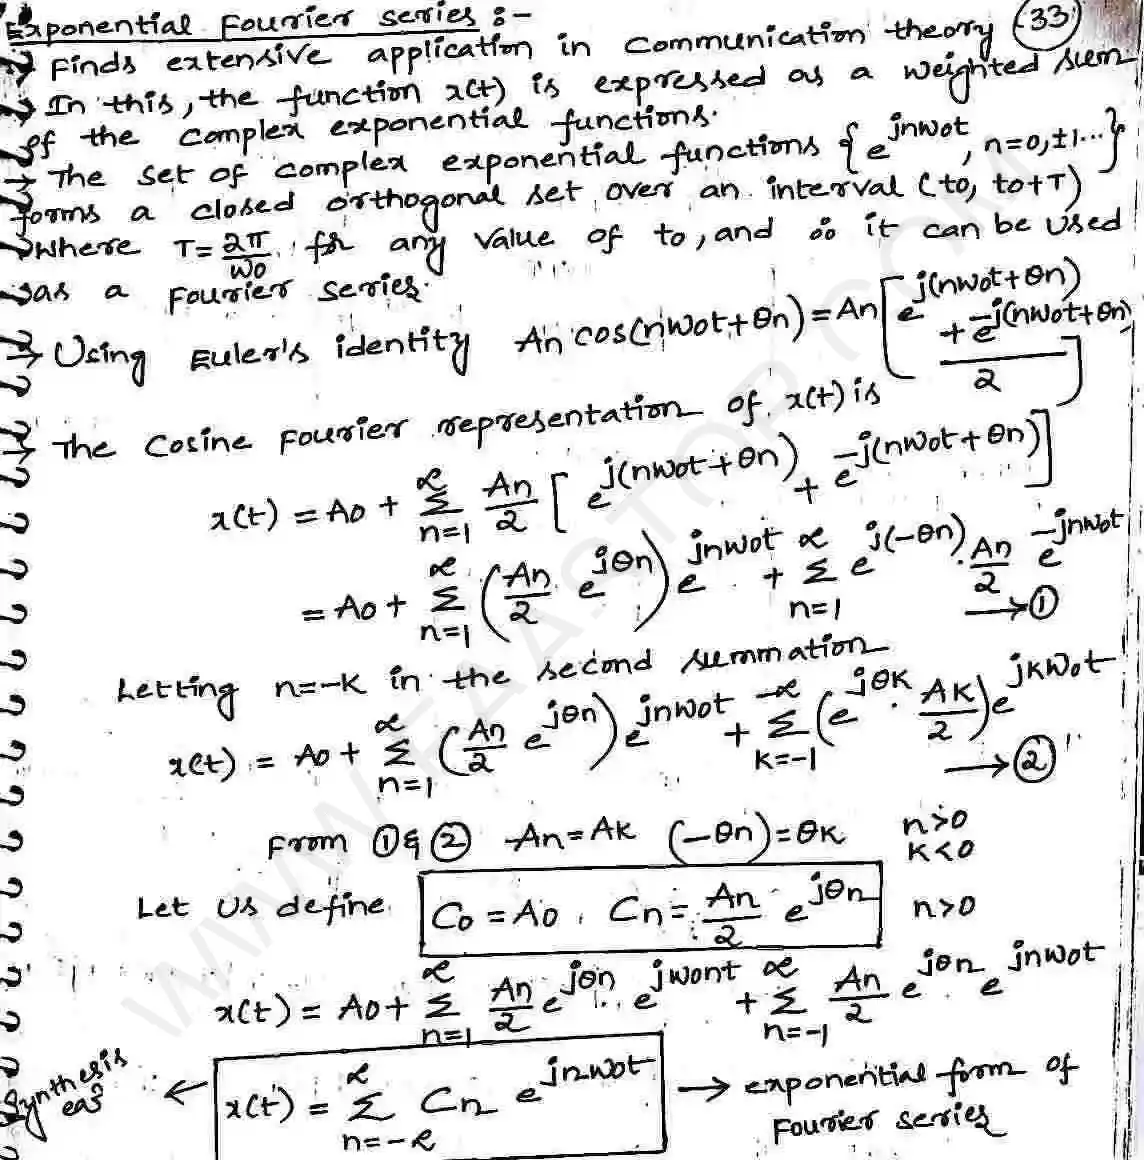 Exponential Fourier series :- (33)
→ Finds extensive application in communication theory
→ In this, the function x(t) is expressed as a weighted sum
of the complex exponential functions.
→ The set of complex exponential functions {e^{jnω0t}, n=0,±1...}
forms a closed orthogonal set over an interval (t0, t0+T)
where T = 2π/ω0 for any value of t0, and ∴ it can be used
as a Fourier series.
→ Using Euler's identity An cos(nω0t+θn) = An [ (e^{j(nω0t+θn)} + e^{-j(nω0t+θn)}) / 2 ]
→ The cosine Fourier representation of x(t) is
x(t) = A0 + ∑_{n=1}^{∝} An/2 [ e^{j(nω0t+θn)} + e^{-j(nω0t+θn)} ]
= A0 + ∑_{n=1}^{∝} (An/2 e^{jθn}) e^{jnω0t} + ∑_{n=1}^{∝} e^{j(-θn)} . An/2 e^{-jnω0t} → ①
Letting n=-k in the second summation
x(t) = A0 + ∑_{n=1}^{∝} (An/2 e^{jθn}) e^{jnω0t} + ∑_{k=-1}^{-∝} (e^{jθk} . Ak/2) e^{jkω0t} → ②
From ① & ② An = Ak (-θn) = θk n>0
k<0
Let us define C0 = A0, Cn = An/2 e^{jθn} n>0
x(t) = A0 + ∑_{n=1}^{∝} An/2 e^{jθn} .. e^{jω0nt} + ∑_{n=-1}^{∝} An/2 e^{jθn} e^{jnω0t}
Synthesis
eqn
← x(t) = ∑_{n=-∝}^{∝} Cn e^{jnω0t} → exponential form of
Fourier series